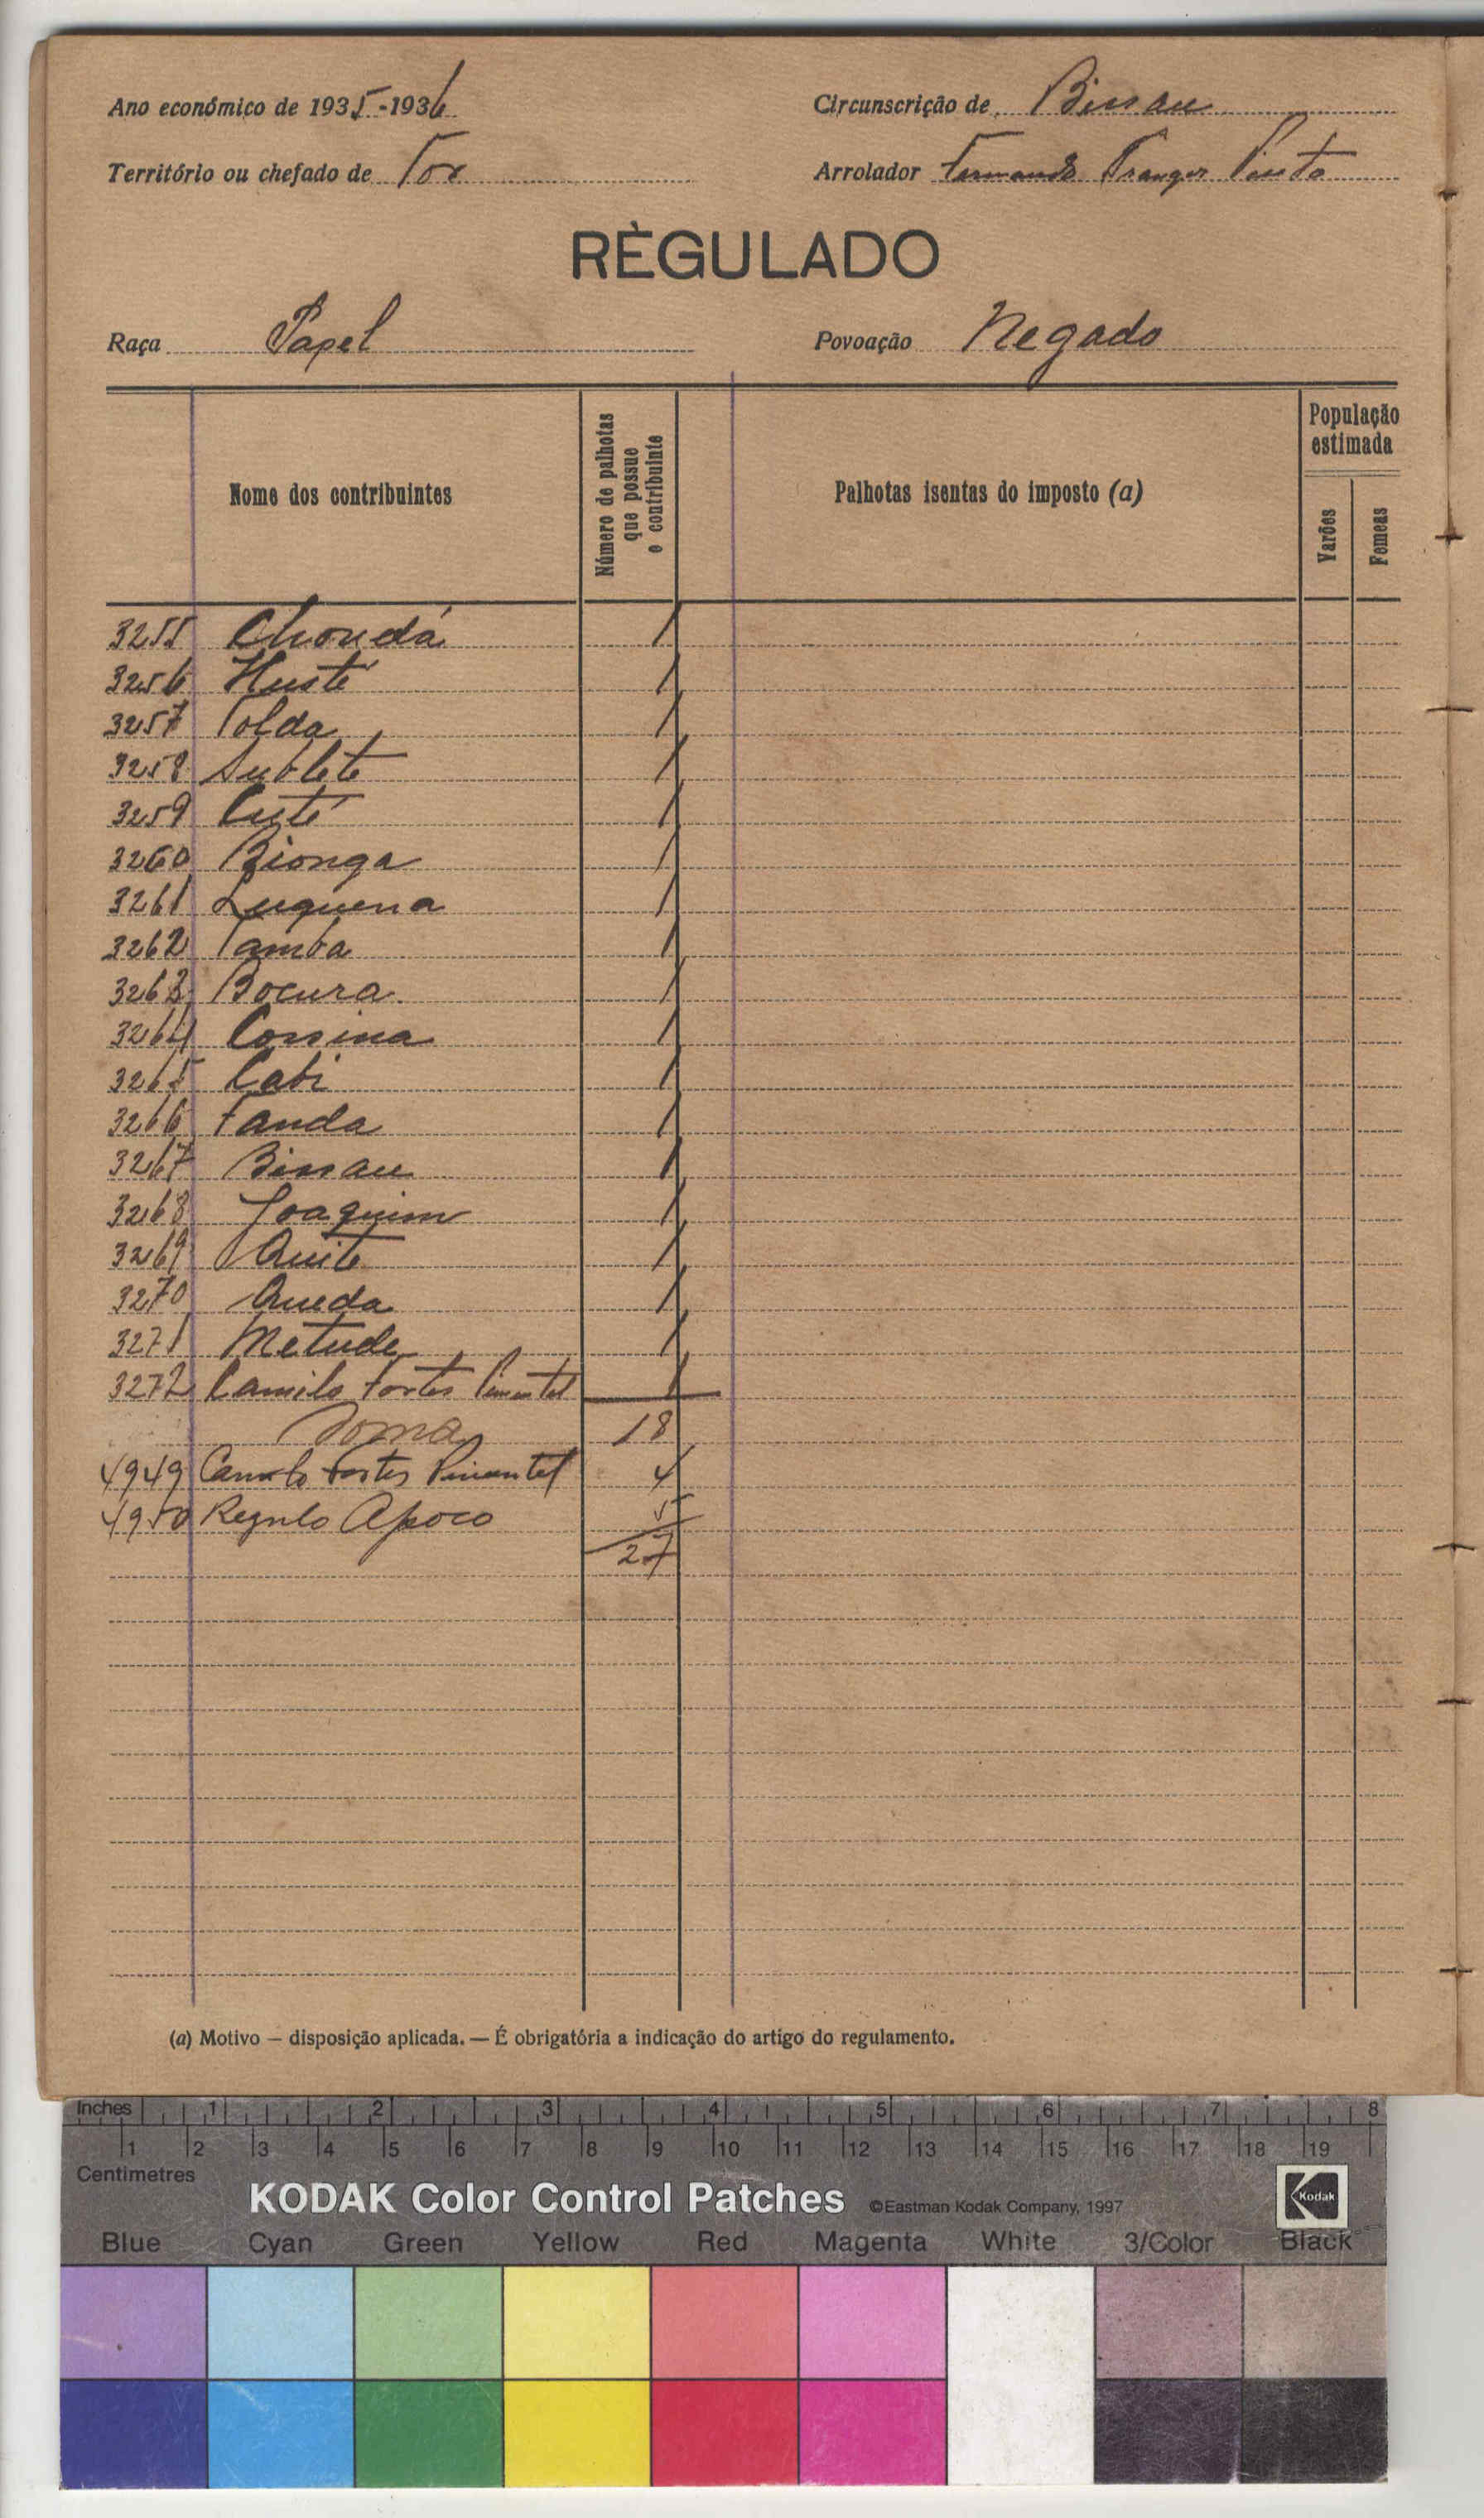 Ano económico de 1935-1936
Circunscrição de Bissau
Território ou chefado de Tor
Arrolador Fernando Pinto
RÈGULADO
Raça Papel
Povoação Negado
Nome dos contribuintes
Número de palhotas que possue o contribuinte
Palhotas isentas do imposto (a)
População estimada
Varões
Femeas
3255 Choudá 1
3256 Husté 1
3257 Tolda 1
3258 Sublete 1
3259 Cuté 1
3260 Bionga 1
3261 Luquena 1
3262 Tamba 1
3263 Bocura 1
3264 Cossina 1
3265 Cabi 1
3266 Fanda 1
3267 Bissau 1
3268 Joaquim 1
3269 Quite 1
3270 Queda 1
3271 Metude 1
3272 Camilo Fortes Pimentel 1
Soma 18
4949 Camilo Fortes Pimentel 4
4950 Regulo Apoco 5
27
(a) Motivo — disposição aplicada. — É obrigatória a indicação do artigo do regulamento.
Inches 1 2 3 4 5 6 7 8
1 2 3 4 5 6 7 8 9 10 11 12 13 14 15 16 17 18 19
Centimetres
KODAK Color Control Patches ©Eastman Kodak Company, 1997 Kodak
Blue Cyan Green Yellow Red Magenta White 3/Color Black